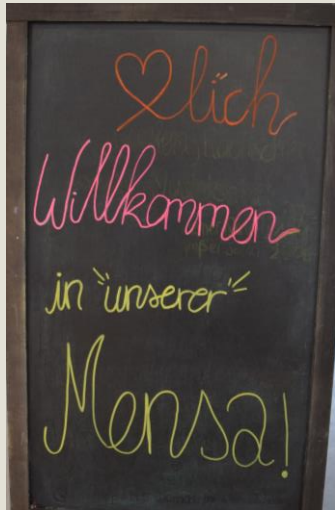 ♡lich
Willkommen
in "unserer"
Mensa!